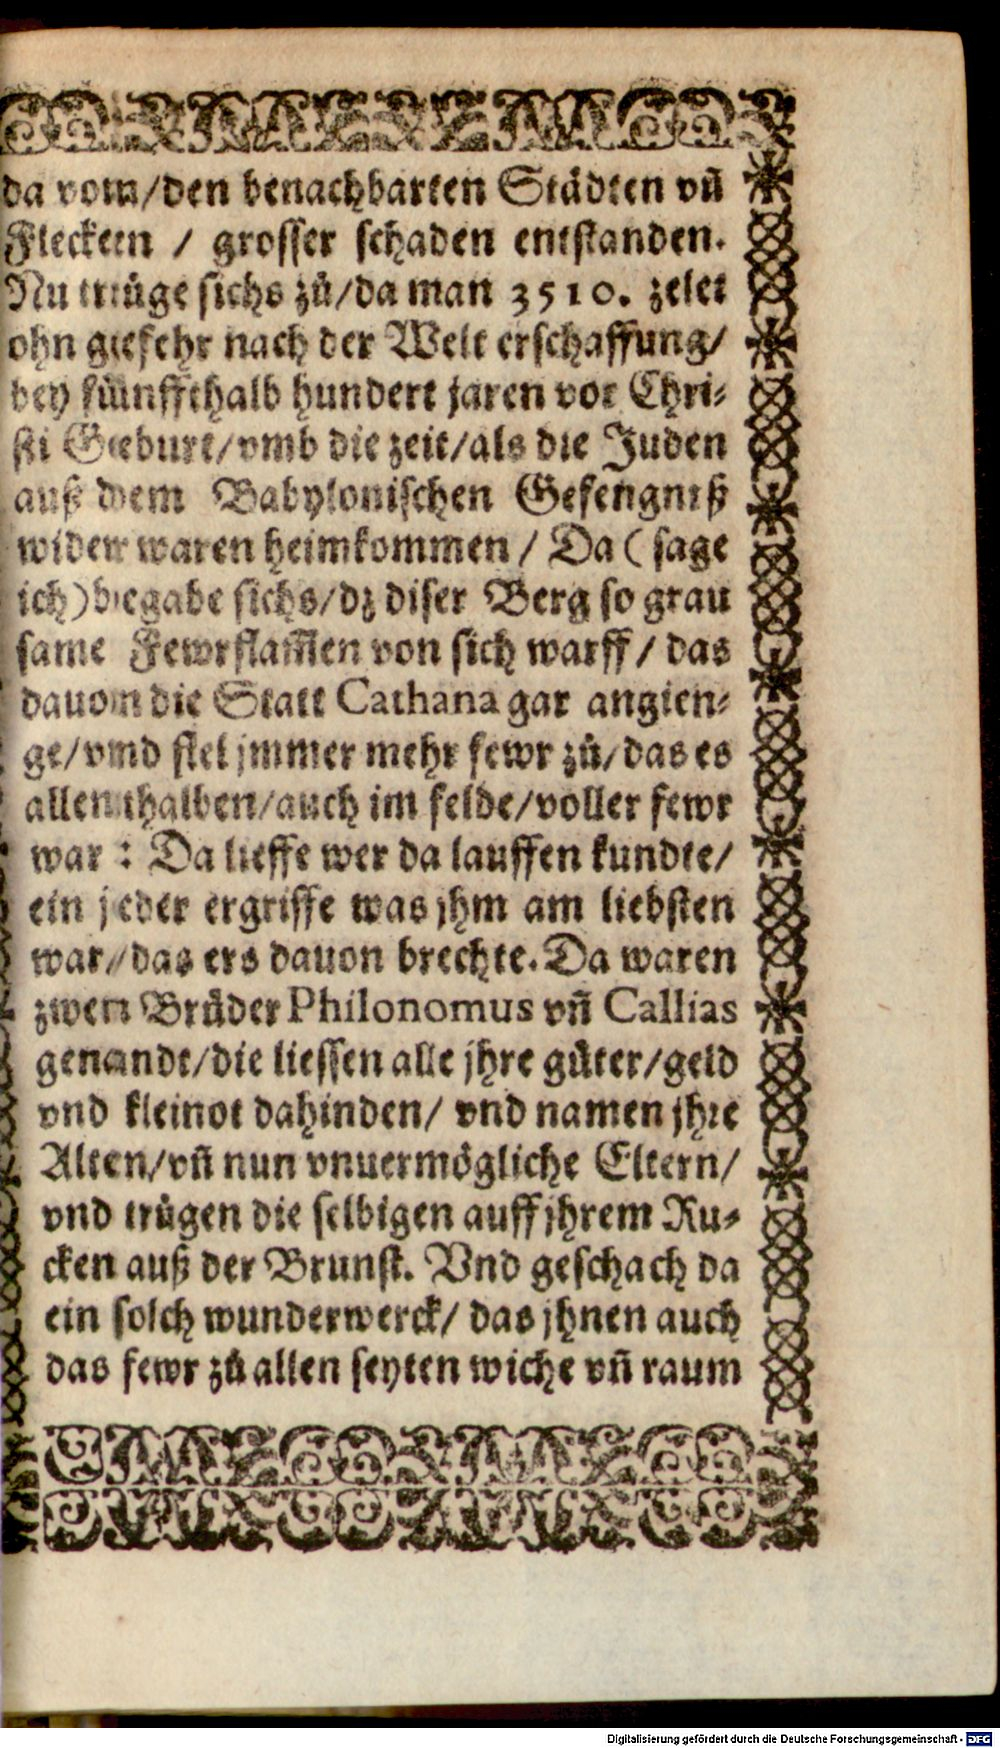 da vom/den benachbarten Städten vñ
Flecken / grosser schaden entstanden.
Nu trüge sichs zů/da man 3510. zelet
ohn gefehr nach der Welt erschaffung/
bey fünffthalb hundert jaren vor Chri-
sti Geburt/vmb die zeit/als die Juden
auß dem Babylonischen Gefengniß
wider waren heimkommen / Da ( sage
ich) begabe sichs/dz diser Berg so grau
same Fewrflam̃en von sich warff / das
dauon die Statt Cathana gar angien-
ge/vnd fiel jmmer mehr fewr zů/das es
allenthalben/auch im felde/voller fewr
war : Da lieffe wer da lauffen kundte/
ein jeder ergriffe was jhm am liebsten
war/das ers dauon brechte. Da waren
zwen Brůder Philonomus vñ Callias
genandt/die liessen alle jhre gůter/geld
vnd kleinot dahinden/ vnd namen jhre
Alten/vñ nun vnuermögliche Eltern/
vnd trůgen die selbigen auff jhrem Ru-
cken auß der Brunst. Vnd geschach da
ein solch wunderwerck/ das jhnen auch
das fewr zů allen seyten wiche vñ raum
Digitalisierung gefördert durch die Deutsche Forschungsgemeinschaft - DFG